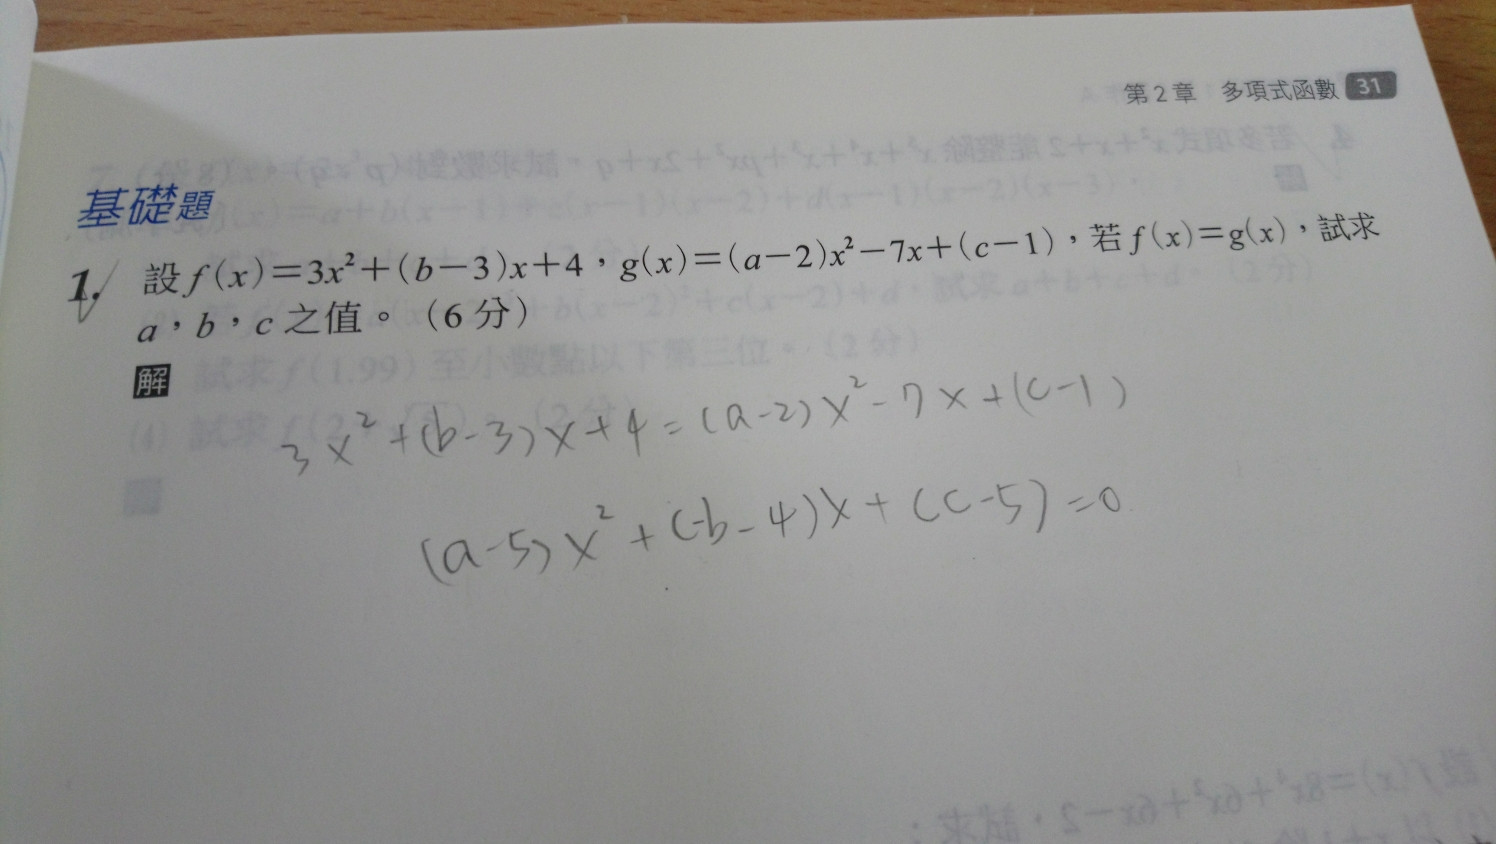 第2章 多項式函數 31
基礎題
1. 設f(x)=3x²+(b-3)x+4,g(x)=(a-2)x²-7x+(c-1),若f(x)=g(x),試求
a,b,c之值。(6分)
解
3x²+(b-3)x+4=(a-2)x²-7x+(c-1)
(a-5)x²+(-b-4)x+(c-5)=0